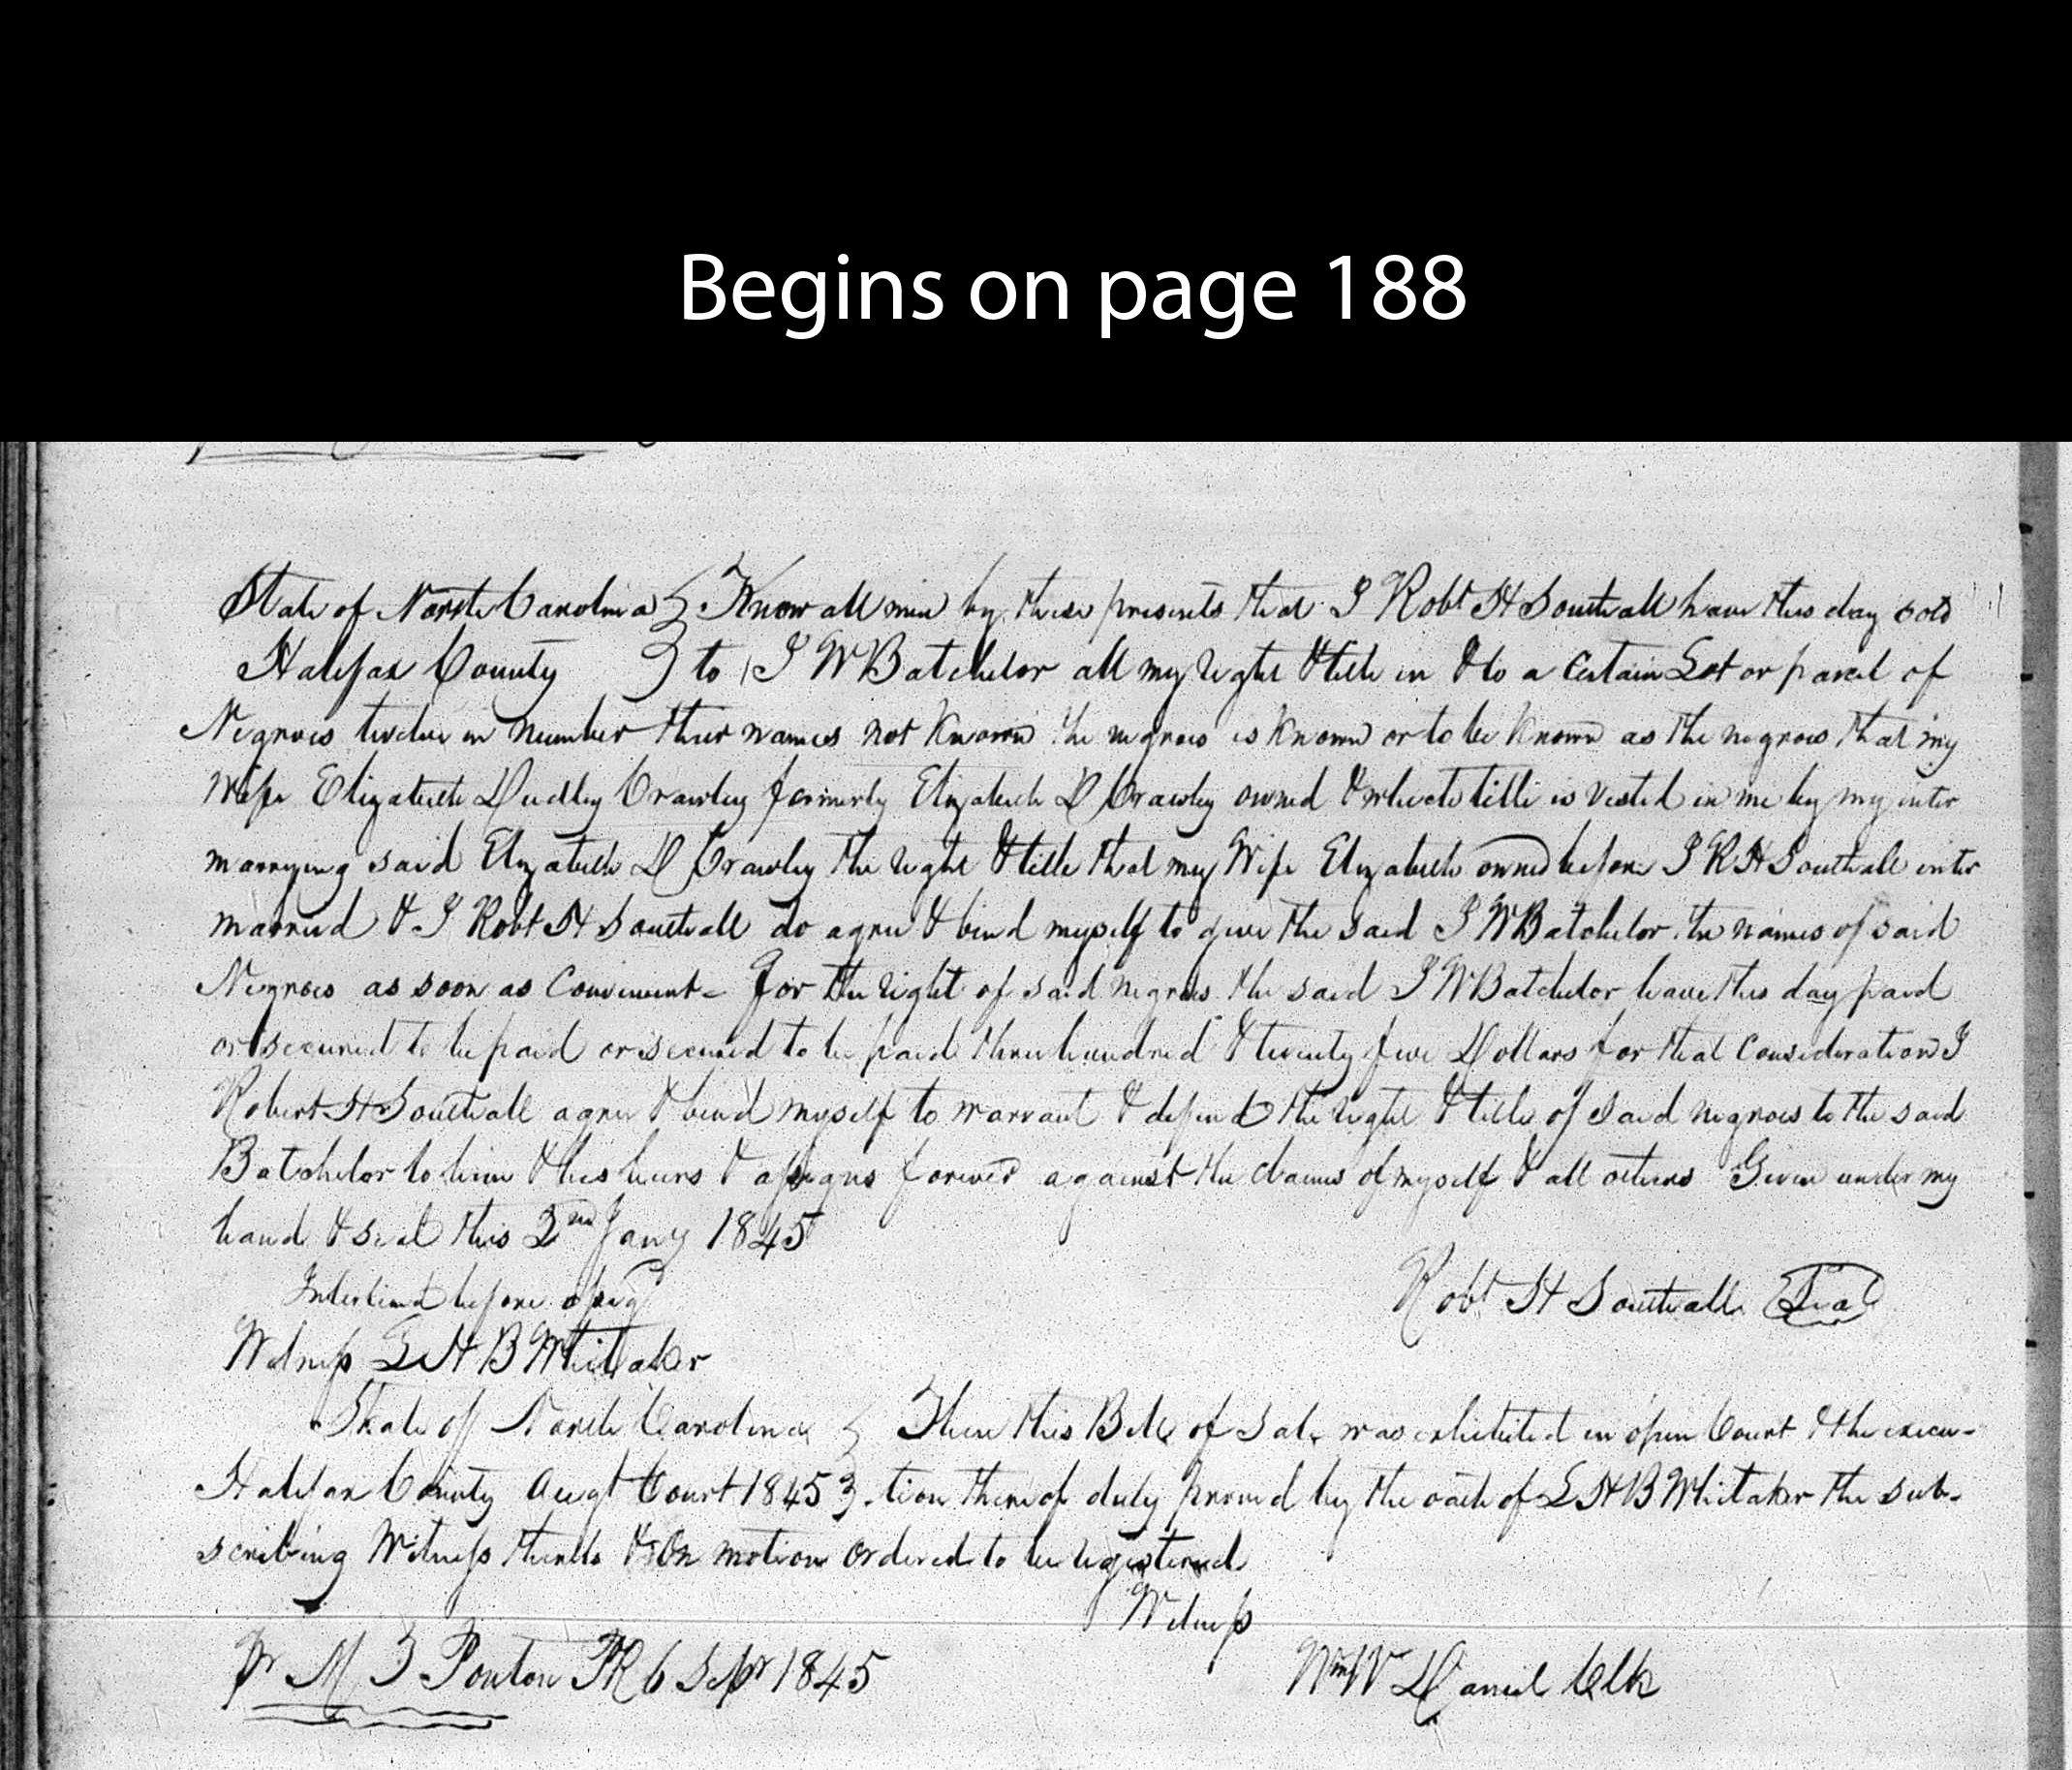 Begins on page 188
State of North Carolina } Know all men by these presents that I Robt H Southall have this day sold
Halifax County } to J W Batchelor all my right & title in & to a certain Lot or parcel of
Negroes twelve in number their names not known the negroes is known or to be known as the negroes that my
Wife Elizabeth Dudley Crawley formerly Elizabeth D Crawley owned & which title is vested in me by my inter
marrying said Elizabeth D Crawley the right & title that my Wife Elizabeth owned before I R H Southall inter
married & I Robt H Southall do agree & bind myself to give the said J W Batchelor the names of said
Negroes as soon as Convenient - for the right of said negroes the said J W Batchelor have this day paid
or secured to be paid or secured to be paid three hundred & twenty five Dollars for that consideration I
Robert H Southall agree & bind myself to warrant & defend the right & title of said negroes to the said
Batchelor to him & his heirs & assigns forever against the claims of myself & all others Given under my
hand & seal this 2nd Jany 1845
Interlined before assig
Robt H Southall Seal
Witness L H B Whitaker
State of North Carolina } Then this Bill of Sale was exhibited in open Court & the execu-
Halifax County Augt Court 1845 } tion thereof duly proved by the oath of L H B Whitaker the sub-
scribing Witness thereto & On motion ordered to be registered
Witness
Pr M Ponton PR 6 Sepr 1845
Wm W Daniel Clk